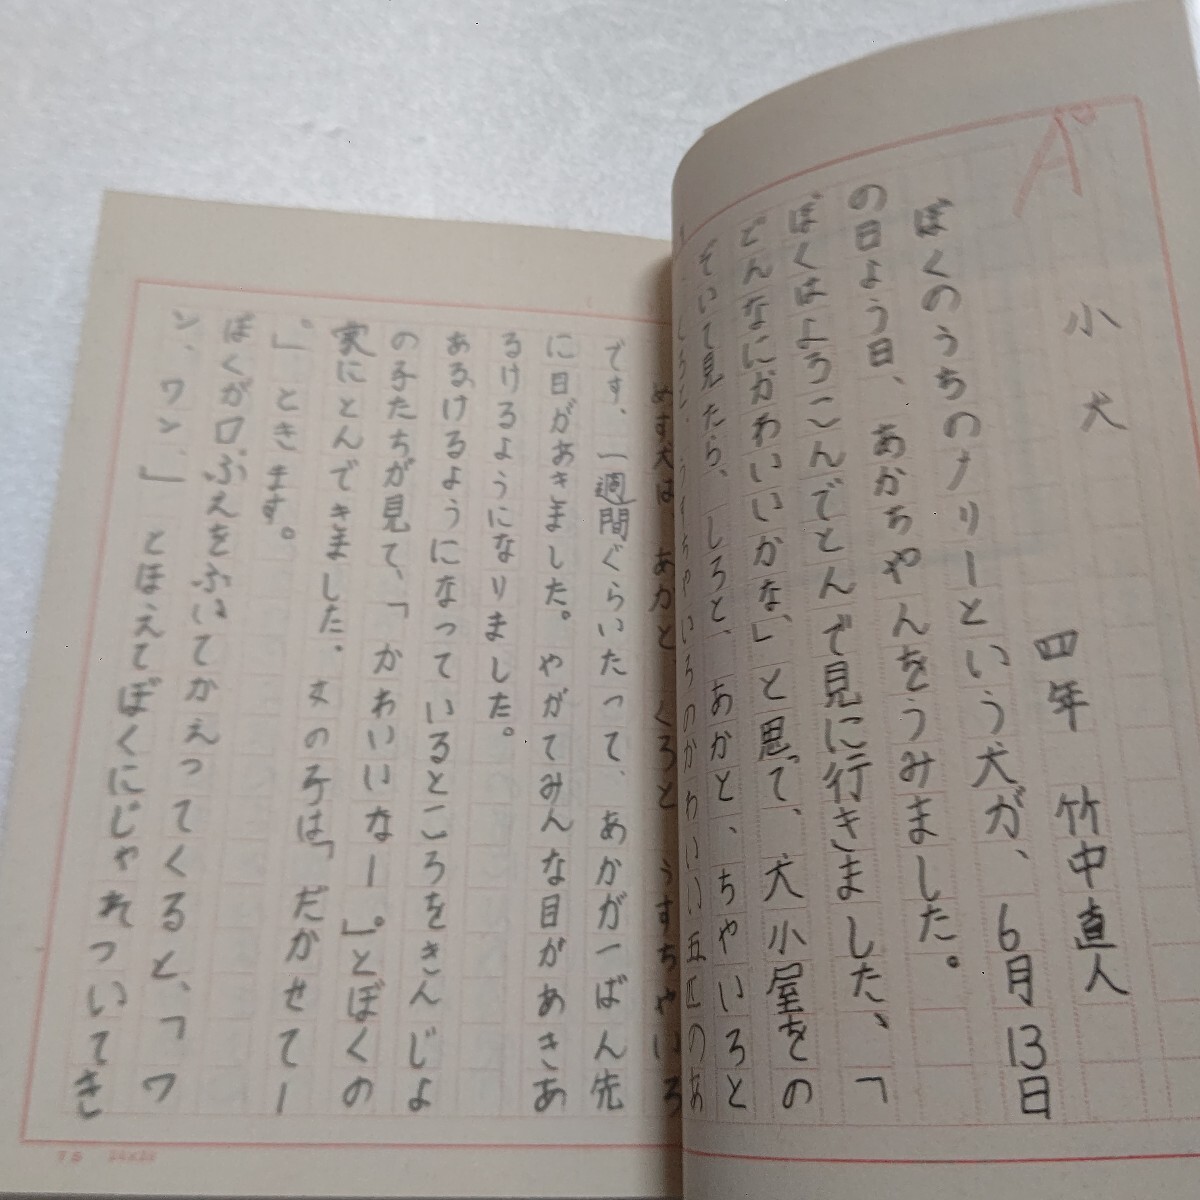 A
小犬
四年 竹中直人
ぼくのうちのナリーという犬が、6月13日
の日よう日、あかちゃんをうみました。
ぼくはよろこんでとんで見に行きました、「
どんなにかわいいかな、」と思って、犬小屋をの
ぞいて見たら、しろと、あかと、ちゃいろと
くろと、うすちゃいろのかわいい五匹のあ
めす犬は あかと、くろと うすちゃいろ
です、一週間ぐらいたって、あかが一ばん先
に目があきました。やがてみんな目があきあ
るけるようになりました。
あるけるようになっているところをきんじよ
の子たちが見て、「かわいいなー。」とぼくの
家にとんできました。女の子は、「だかせてー
。」ときます。
ぼくが口ぶえをふいてかえってくると、「ワ
ン、ワン、」とほえてぼくにじゃれついてき